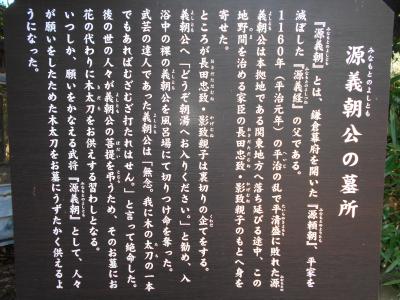 源義朝公の墓所
みなもとのよしとも
『源義朝』とは、鎌倉幕府を開いた『源頼朝』、平家を
滅ぼした『源義経』の父である。
1160年（平治元年）の平治の乱で平清盛に敗れた源
義朝公は本拠地である関東地方へ落ち延びる途中、この
地野間を治める家臣の長田忠致、景致親子のもとへ身を
寄せた。
ところが長田忠致、景致親子は裏切りの企てをする。
義朝公へ「どうぞ朝湯へお入りください。」と勧め、入
浴中の裸の義朝公を風呂場にて切りつけ命を奪った。
武芸の達人であった義朝公は「無念、我に木太刀の一本
でもあればむざむざ打たれはせん。」と言って絶命した。
後の世の人々が義朝公の菩提を弔うため、そのお墓にお
花の代わりに木太刀をお供えする習わしとなる。
いつしか、願いをかなえる武将『源義朝』として、人々
が願いをしたためた木太刀をお墓にうずたかく供えるよ
うになった。